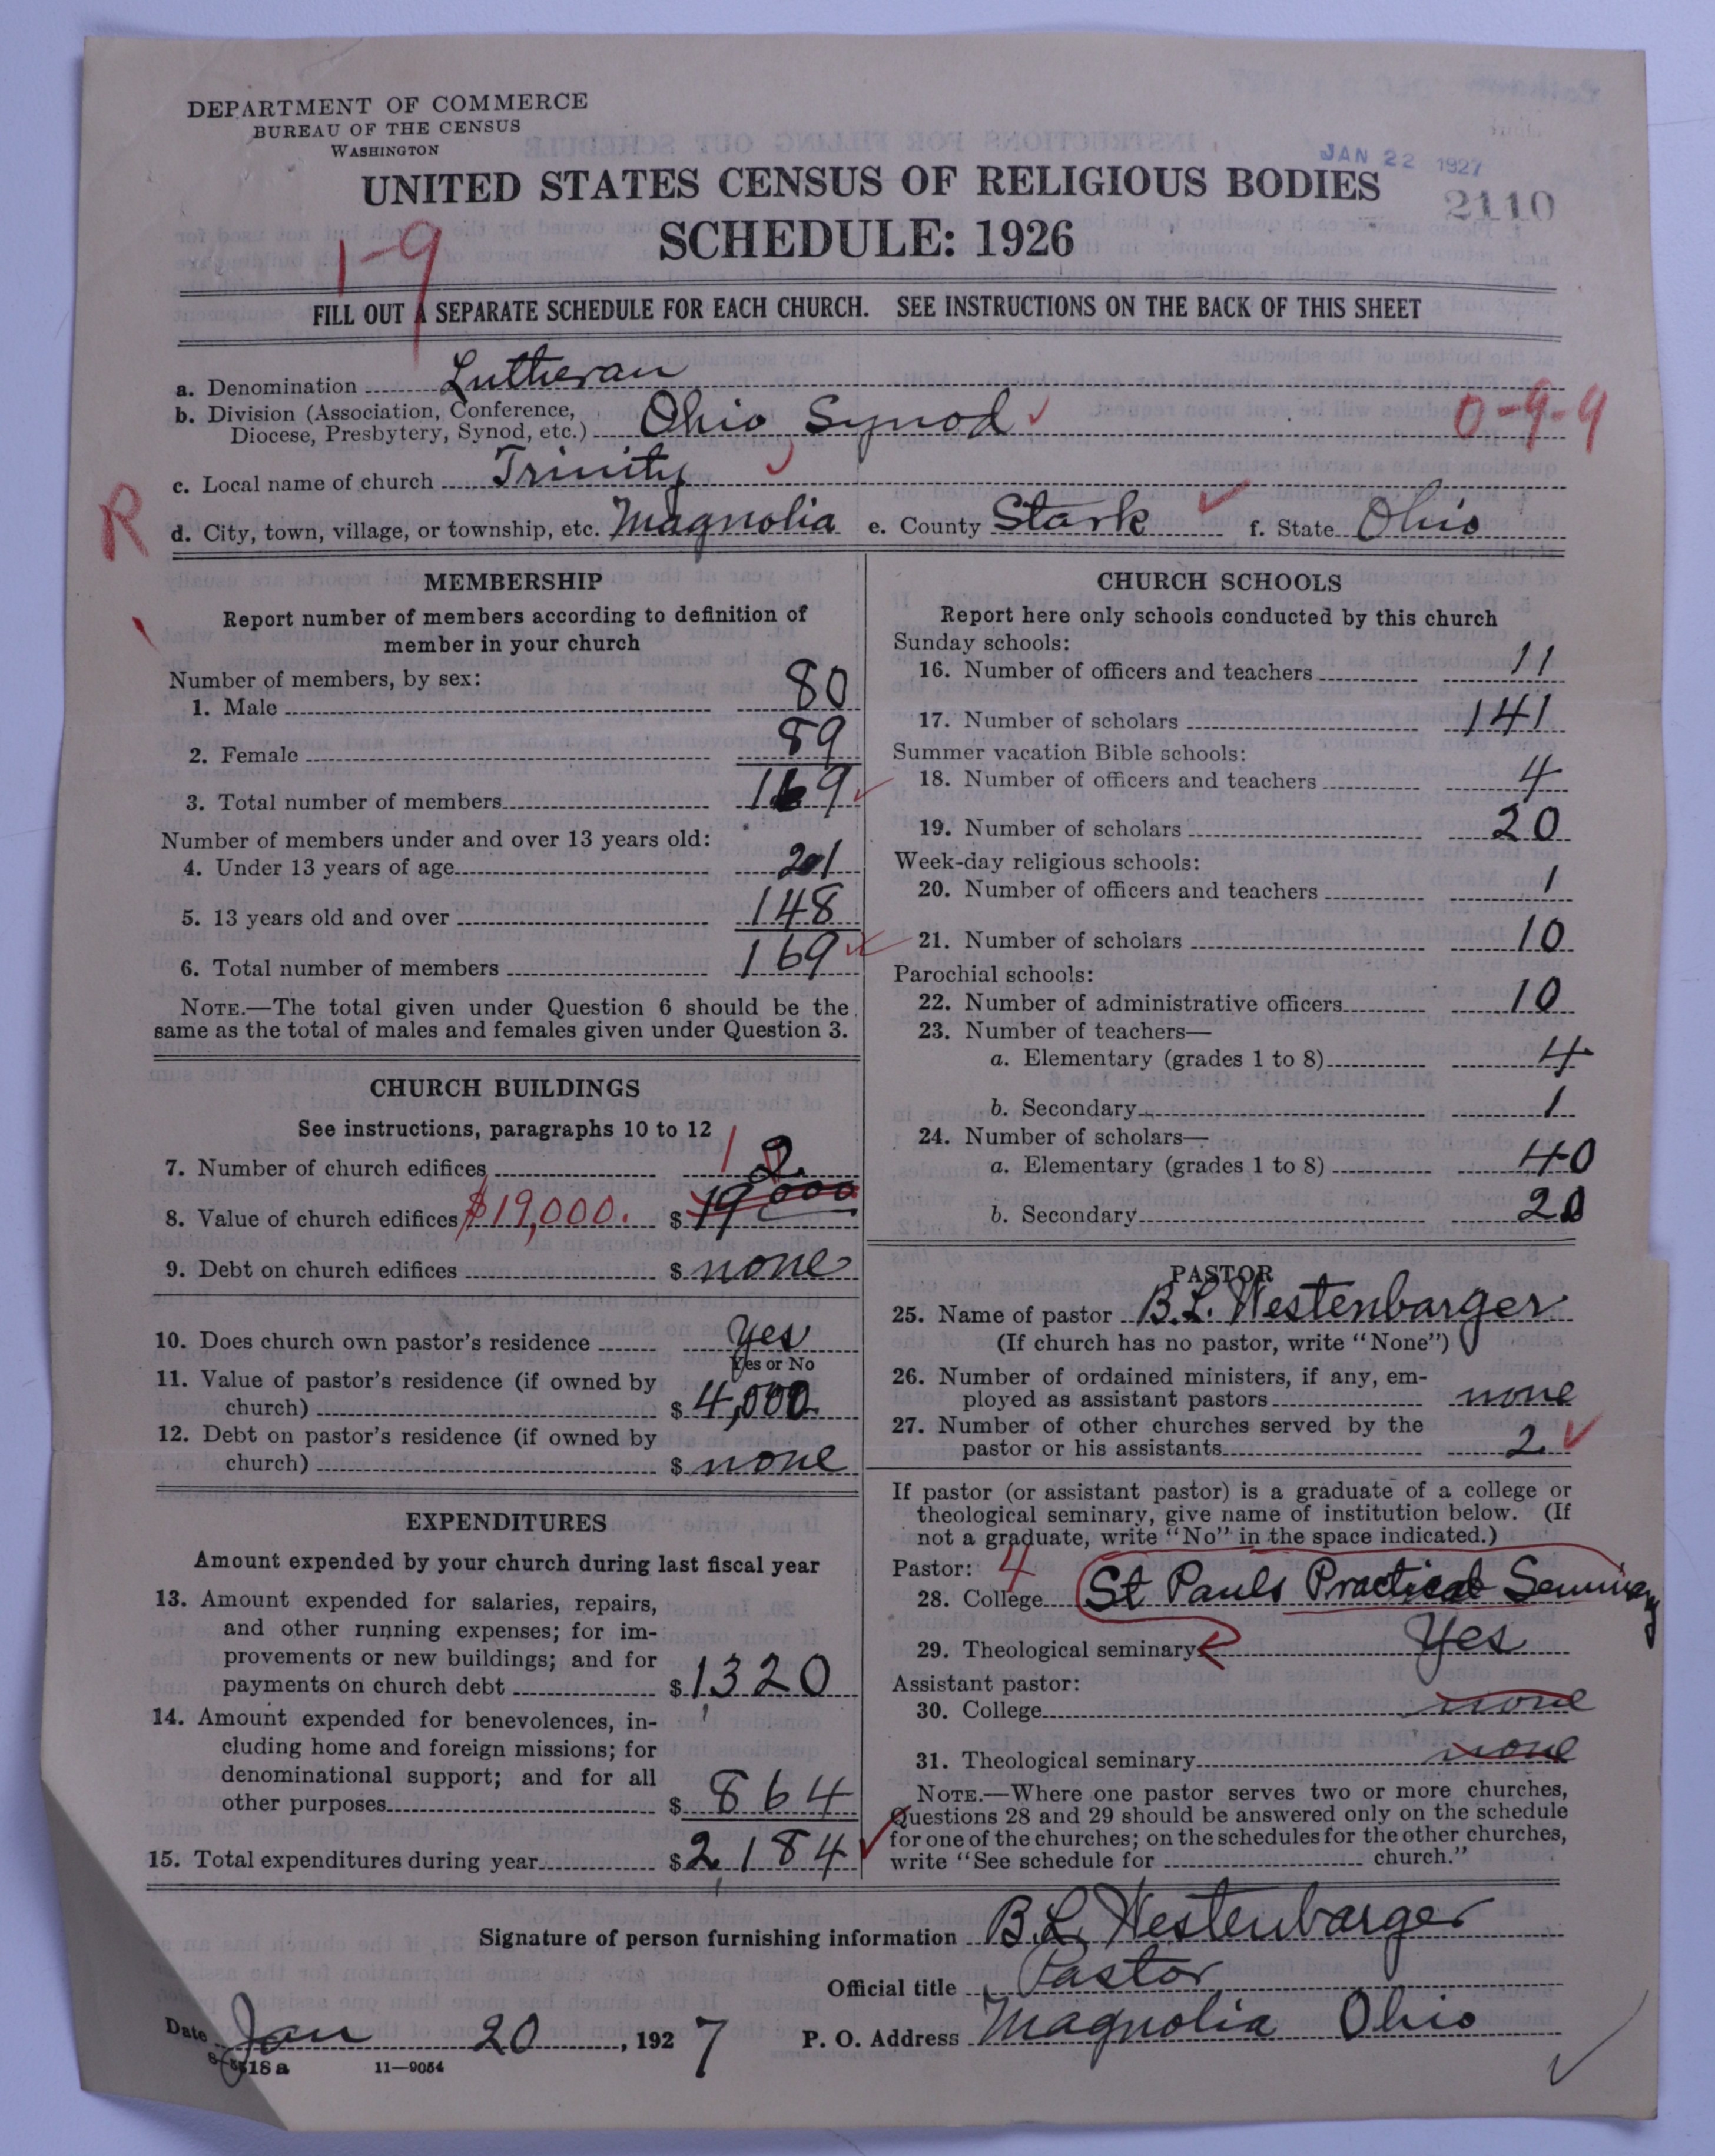 DEPARTMENT OF COMMERCE
BUREAU OF THE CENSUS
WASHINGTON
JAN 22 1927
2110
UNITED STATES CENSUS OF RELIGIOUS BODIES
SCHEDULE: 1926
1-9
FILL OUT A SEPARATE SCHEDULE FOR EACH CHURCH. SEE INSTRUCTIONS ON THE BACK OF THIS SHEET
a. Denomination Lutheran
b. Division (Association, Conference,
Diocese, Presbytery, Synod, etc.) Ohio Synod
0-9-9
c. Local name of church Trinity
R
d. City, town, village, or township, etc. Magnolia e. County Stark f. State Ohio
MEMBERSHIP
Report number of members according to definition of
member in your church
Number of members, by sex:
1. Male 80
2. Female 89
3. Total number of members 169
Number of members under and over 13 years old:
4. Under 13 years of age 21
5. 13 years old and over 148
6. Total number of members 169
NOTE.—The total given under Question 6 should be the
same as the total of males and females given under Question 3.
CHURCH BUILDINGS
See instructions, paragraphs 10 to 12
7. Number of church edifices 1 2
8. Value of church edifices $19,000. $ 19000
9. Debt on church edifices $ none
10. Does church own pastor's residence Yes
Yes or No
11. Value of pastor's residence (if owned by
church) $ 4,000
12. Debt on pastor's residence (if owned by
church) $ none
EXPENDITURES
Amount expended by your church during last fiscal year
13. Amount expended for salaries, repairs,
and other running expenses; for im-
provements or new buildings; and for
payments on church debt $ 1320
14. Amount expended for benevolences, in-
cluding home and foreign missions; for
denominational support; and for all
other purposes $ 864
15. Total expenditures during year $ 2,184
CHURCH SCHOOLS
Report here only schools conducted by this church
Sunday schools:
16. Number of officers and teachers 11
17. Number of scholars 141
Summer vacation Bible schools:
18. Number of officers and teachers 4
19. Number of scholars 20
Week-day religious schools:
20. Number of officers and teachers 1
21. Number of scholars 10
Parochial schools:
22. Number of administrative officers 10
23. Number of teachers—
a. Elementary (grades 1 to 8) 4
b. Secondary 1
24. Number of scholars—
a. Elementary (grades 1 to 8) 40
b. Secondary 20
PASTOR
25. Name of pastor B.L. Westenbarger
(If church has no pastor, write "None")
26. Number of ordained ministers, if any, em-
ployed as assistant pastors none
27. Number of other churches served by the
pastor or his assistants 2
If pastor (or assistant pastor) is a graduate of a college or
theological seminary, give name of institution below. (If
not a graduate, write "No" in the space indicated.)
Pastor: 4
28. College St Pauls Practical Seminary
29. Theological seminary Yes
Assistant pastor:
30. College none
31. Theological seminary none
NOTE.—Where one pastor serves two or more churches,
Questions 28 and 29 should be answered only on the schedule
for one of the churches; on the schedules for the other churches,
write "See schedule for church."
Signature of person furnishing information B.L. Westenbarger
Official title Pastor
Date Jan 20, 1927 P. O. Address Magnolia Ohio
11—9054